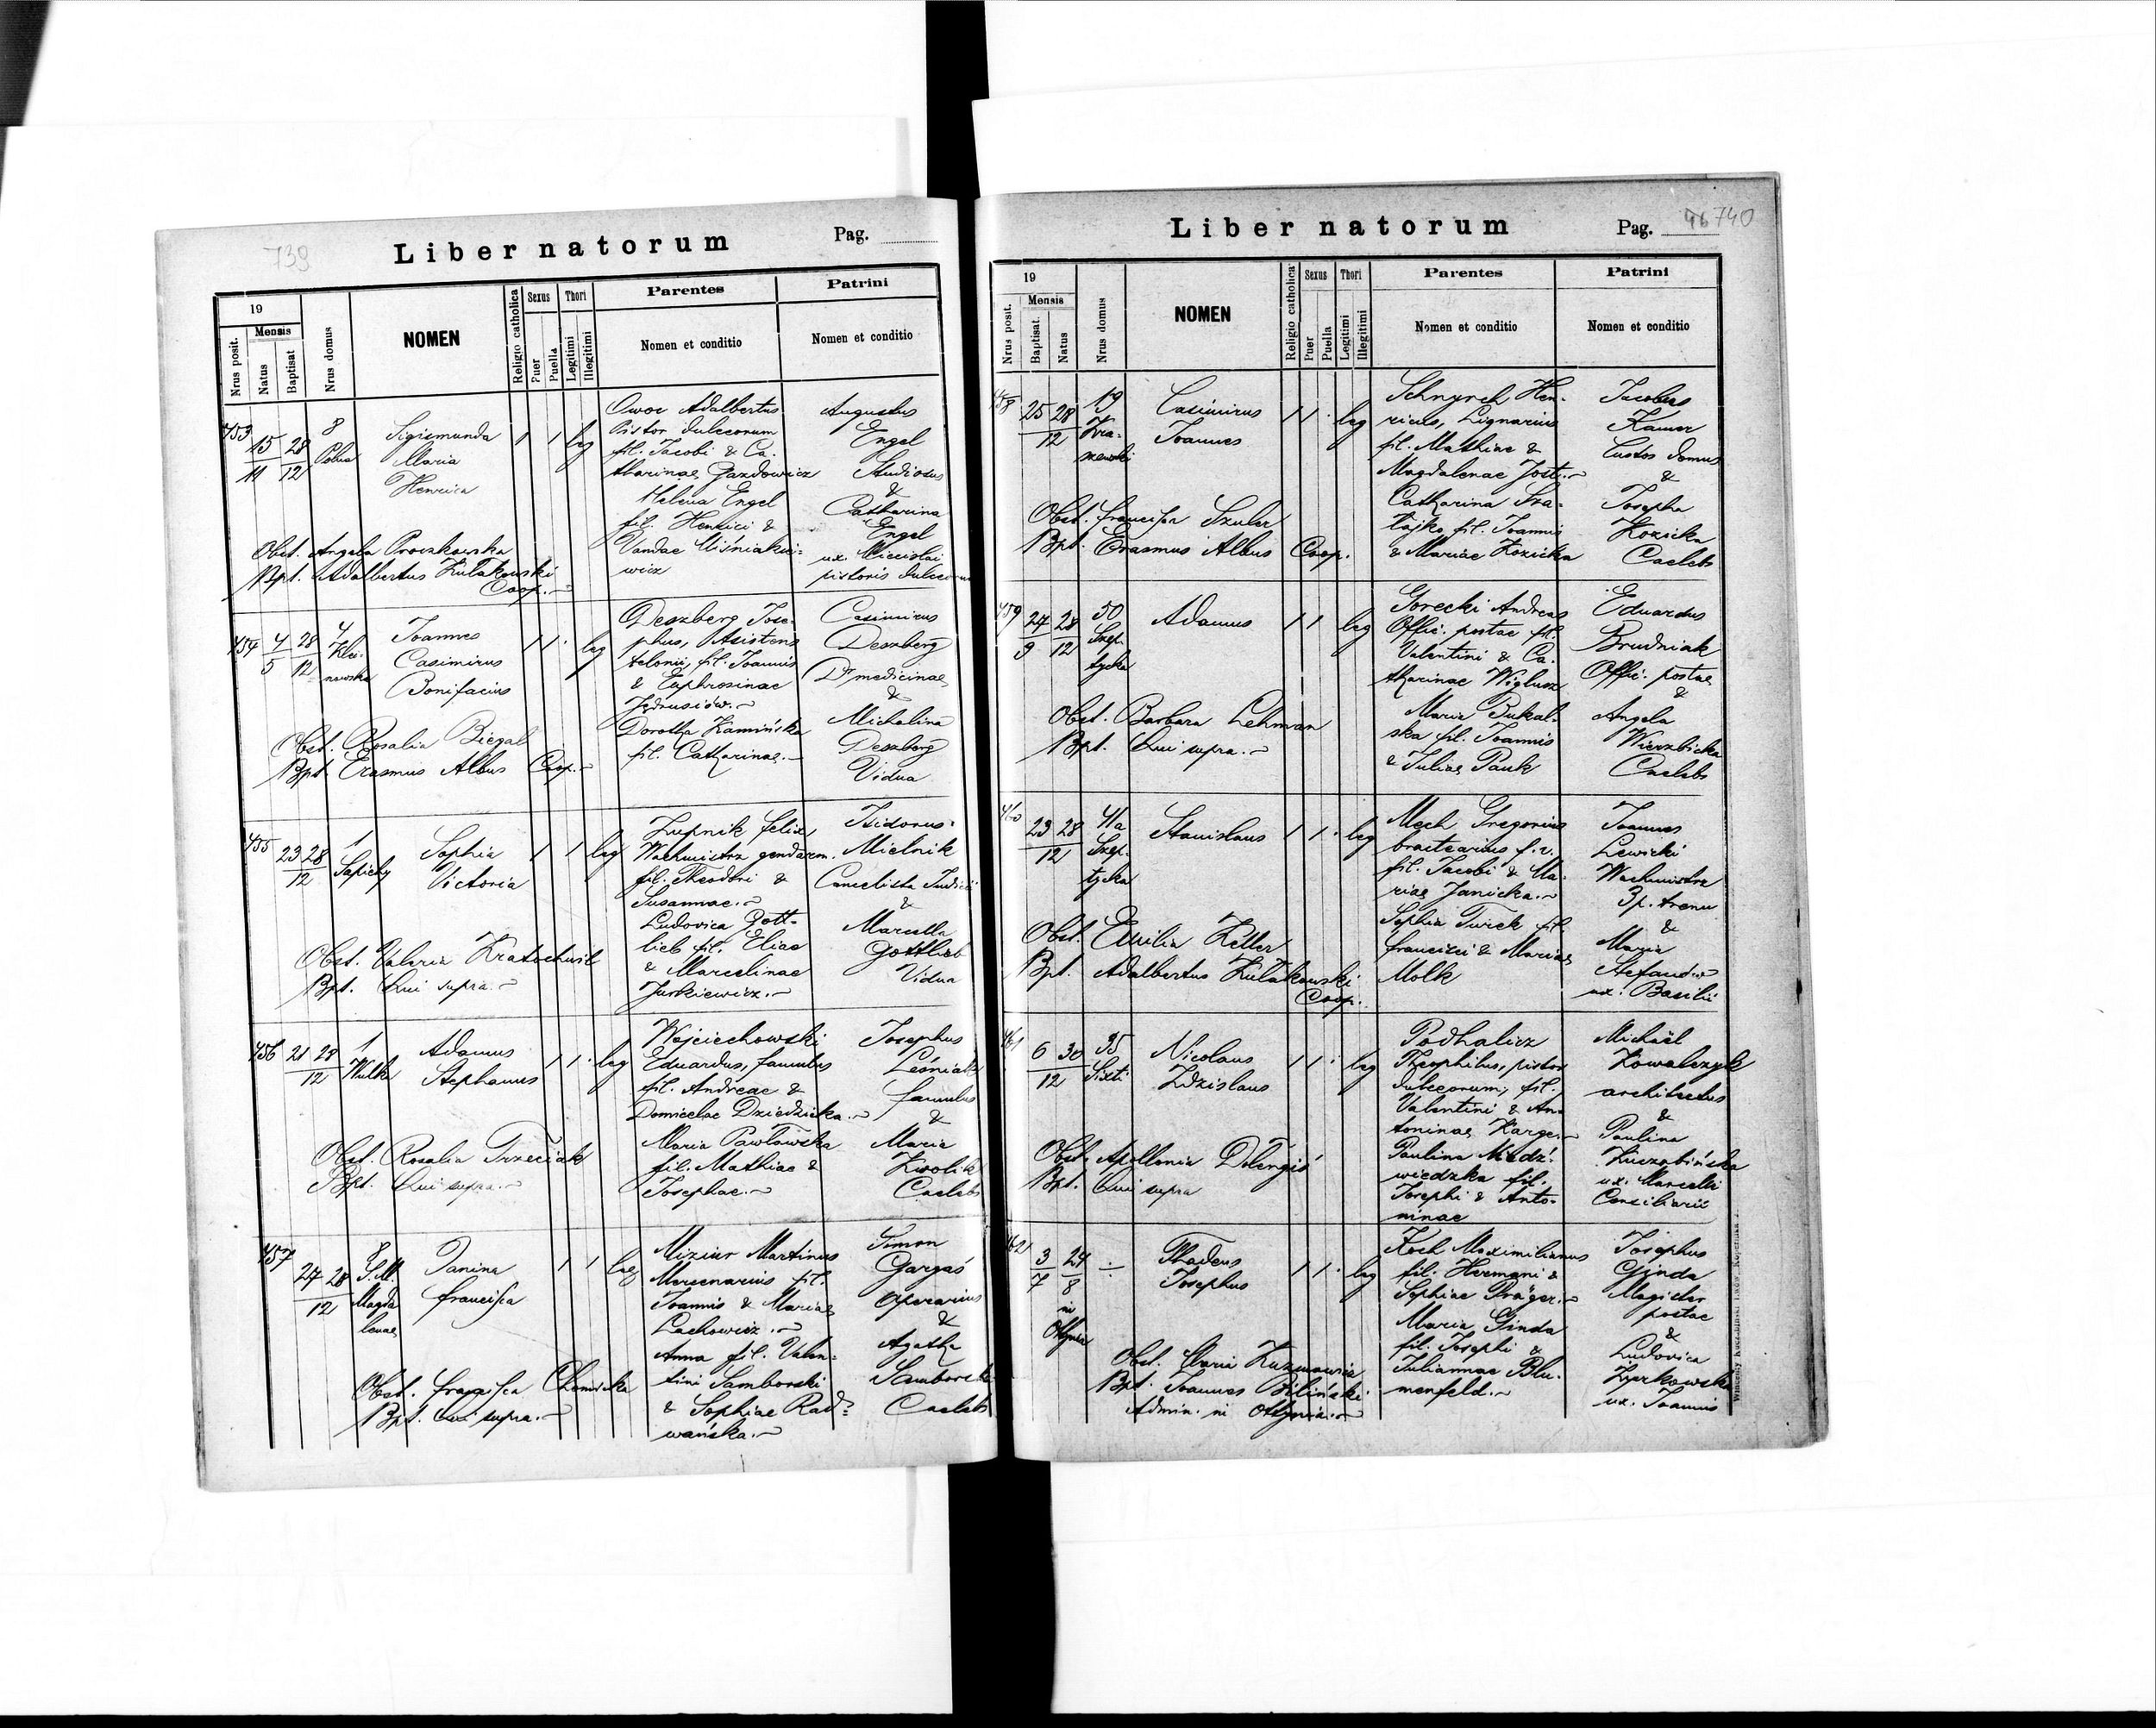 739
Liber natorum
Pag.
19
Mensis
Nrus posit.
Natus
Baptisat
Nrus domus
NOMEN
Religio catholica
Sexus
Puer
Puella
Thori
Legitimi
Illegitimi
Parentes
Nomen et conditio
Patrini
Nomen et conditio
753
15 28
11 12
8
Sigismunda
Maria
Henrica
1 1 leg
Owoc Adalbertus
Pistor dulceorum
fil. Jacobi & Ca-
tharinae Gazdowicz
Helena Engel
fil. Henrici &
Vandae Wiśniakie-
wicz
Augustus
Engel
Studiosus
&
Catharina
Engel
ux. Miecislai
pistoris dulceorum
Obst. Angela Proszkowska
Bpt. Adalbertus Kułakowski
Coop.
754
4 28
5 12
4
Joannes
Casimirus
Bonifacius
1 1 leg
Deszberg Jose-
phus, Asistens
telonii, fil. Joannis
& Euphrosinae
Jędrusiów.
Dorothea Kamińska
fil. Catharinae.
Casimirus
Deszberg
Dr medicinae
&
Michalina
Deszberg
Vidua
Obst. Rosalia Biegal
Bpt. Erasmus Albus Coop.
755
23 28
12
1
Sapiehy
Sophia
Victoria
1 1 leg
Żupnik Felix,
Wachmistrz gendarm.
fil. Theodori &
Susannae.
Ludovica Gott-
lieb fil. Eliae
& Marcelinae
Jurkiewicz.
Isidorus
Mielnik
Cancelista Judicii
&
Marcella
Gottlieb
Vidua
Obst. Valeria Kratochwil
Bpt. Qui supra.
756
21 28
12
1
Wulka
Adamus
Stephanus
1 1 leg
Wojciechowski
Eduardus, famulus
fil. Andreae &
Domicelae Dziedzicka.
Maria Pawłowska
fil. Mathiae &
Josephae.
Josephus
Leśniak
famulus
&
Maria
Kwolik
Caelebs
Obst. Rosalia Trzeciak
Bpt. Qui supra.
757
27 28
12
8
S. M.
Magda
lenae
Janina
Francisca
1 1 leg
Miziur Martinus
Mercenarius fil.
Joannis & Mariae
Lachowicz.
Anna fil. Valen-
tini Samborski
& Sophiae Rad-
wańska.
Simon
Gargas
Operarius
&
Agatha
Samborska
Caelebs
Obst. Francisca Chomicka
Bpt. Qui supra.
Liber natorum
Pag. 740
19
Mensis
Nrus posit.
Baptisat.
Natus
Nrus domus
NOMEN
Religio catholica
Sexus
Puer
Puella
Thori
Legitimi
Illegitimi
Parentes
Nomen et conditio
Patrini
Nomen et conditio
758
25 28
12
19
Kra-
szewski
Casimirus
Joannes
1 1 leg
Schnyrch Hen-
ricus, Lignarius
fil. Mathiae &
Magdalenae Jost.
Catharina Sza-
łajko fil. Joannis
& Mariae Kozicka
Jacobus
Kamer
Custos domus
&
Josepha
Kozicka
Caelebs
Obst. Francisca Szuler
Bpt. Erasmus Albus Coop.
759
27 28
9 12
50
Szep-
tycka
Adamus
1 1 leg
Gorecki Andreas
Offic. postae fil.
Valentini & Ca-
tharinae Wiglusz
Maria Bukal-
ska fil. Joannis
& Juliae Pauk
Eduardus
Brudniak
Offic. postae
&
Angela
Wierzbicka
Caelebs
Obst. Barbara Lehman
Bpt. Qui supra.
760
23 28
12
41a
Szep-
tycka
Stanislaus
1 1 leg
Mech Gregorius
bractearius f. v.
fil. Jacobi & Ma-
riae Janicka.
Sophia Turek fil.
Francisci & Mariae
Molk
Joannes
Lewicki
Wachmistrz
3 p. trenu
&
Maria
ux. Basilii
Obst. Emilia Keller
Bpt. Adalbertus Kułakowski
Coop.
761
6 30
12
35
Sixti
Nicolaus
Zdzislaus
1 1 leg
Podhalicz
Theophilus, pistor
dulceorum, fil.
Valentini & An-
toninae Karge.
Paulina Miedź-
wiedzka fil.
Josephi & Anto-
ninae
Michaël
Kowalczyk
architectus
&
Paulina
Kuczabińska
ux. Marcelli
Consiliarii
Obst. Apollonia Dolengis
Bpt. Qui supra
762
3 24
7 8
in
Ottynia
Thadeus
Josephus
1 1 leg
Koch Maximilianus
fil. Hermani &
Sophiae Präger.
Maria Ginda
fil. Josephi &
Juliannae Blu-
menfeld.
Josephus
Ginda
Magister
postae
&
Ludovica
Żyrkowska
ux. Joannis
Obst. Maria Kuzmowicz
Bpt. Joannes Biliński
Admin. in Ottynia.